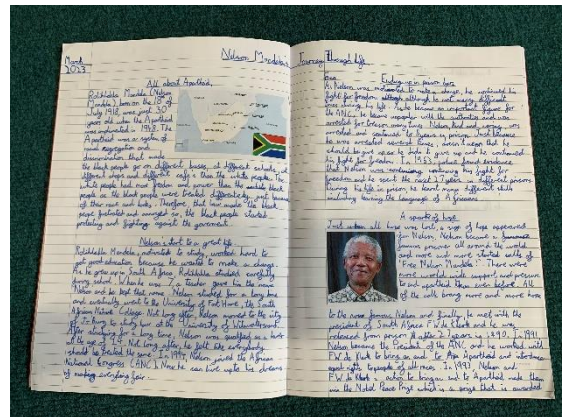 March
2023
Nelson Mandela's
Journey Through life
All about Apartheid
Rolihlahla Mandela (Nelson
Mandela), born on the 18th of
July 1918, was just 30
years old when the Apartheid
was activated in 1948. The
Apartheid was a system
of racial segregation and
discrimination that made
the black people go on different buses, at different schools, at
different shops and different cafe's than the white people. The
white people had more freedom and power than the black
people as the black people were treated differently just because
of their race and body. Therefore, that law made the black
people frustrated and annoyed so, the black people started
protesting and fighting against the government.
Nelson's start to a great life
Rolihlahla Mandela, motivated to study, worked hard to
get good education because he wanted to make a change.
As he grew up in South Africa, Rolihlahla studied carefully
during school. When he was 7, a teacher gave his the name
Nelson and he kept that name. Nelson studied for a long time
and eventually went to the University of Fort Hare, the South
African Native College. Not long after, Nelson moved to the city
of Jo'burg to study law at the University of Witwatersrand.
After studying for a long time, Nelson was qualified as a lawyer
at the age of 24. Not long after, he felt like everybody
should be treated the same. In 1943, Nelson joined the African
National Congress (ANC). Now he can live up to his dreams
of making everything fair.
Ending up in prison
As Nelson was motivated to make a change, he continued his
fight for freedom although he met many difficult
times during his life. As he became an important figure for
the ANC, he became unpopular with the authorities and was
arrested for treason many times. Nelson had and again, was
arrested and continued to remain in prison. Just because
he was arrested several times, doesn't mean that he
should be give up and he continued
his fight for freedom. In 1963, police found evidence
that Nelson was continuing his fight for
freedom and he spent the next 27 years in different prisons.
During his life in prison, he learnt many different skills
including learning the language of Afrikaans.
A spark of hope
Just when all hope was lost, a sign of hope appeared
for Nelson. Nelson became a
famous prisoner all around the world
and more and more started calls of
"Free Nelson Mandela". There were
more world wide support and pressure
to end apartheid than ever before. All
of the calls bring more and more hope
to the now famous Nelson and finally, he met with the
president of South Africa FW de Klerk and he was
released from prison after 27 years in 1990. In 1991
Nelson became the President of the ANC and he worked with
FW de Klerk to bring an end to Apartheid and introduce
equal rights to people of all races. In 1993, Nelson and
FW de Klerk's action to bring an end to Apartheid made them
win the Nobel Peace Prize which is a prize that is awarded